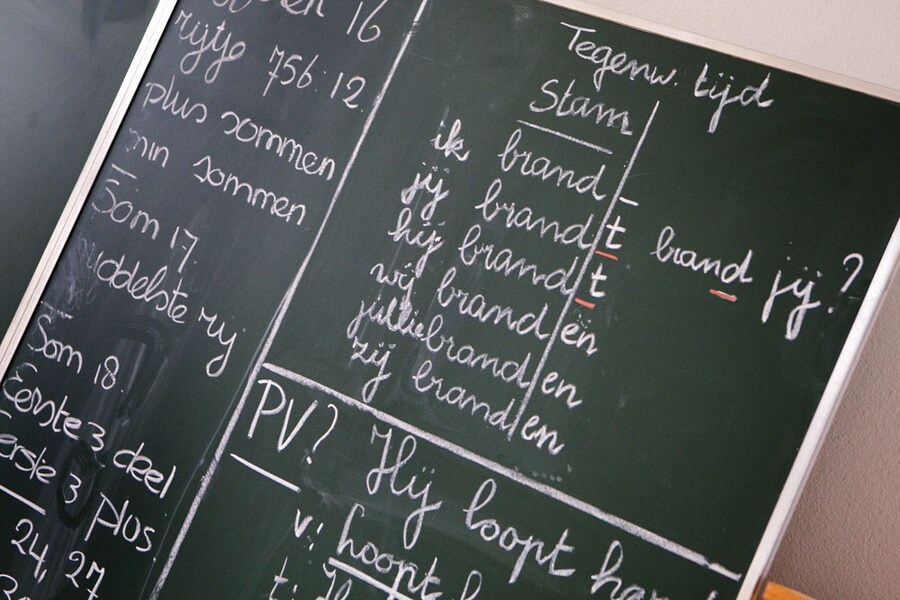 16
rijtje 756:12.
plus sommen
min sommen
Som 17.
middelste rij
Som 18.
Eerste 3 deel
eerste 3 plus
24, 27
Tegenw. tijd
Stam
ik brand _
jij brand t brand jij?
hij brand t
wij brand en
jullie brand en
zij brand en
PV? Hij loopt
v: hoopt
t: